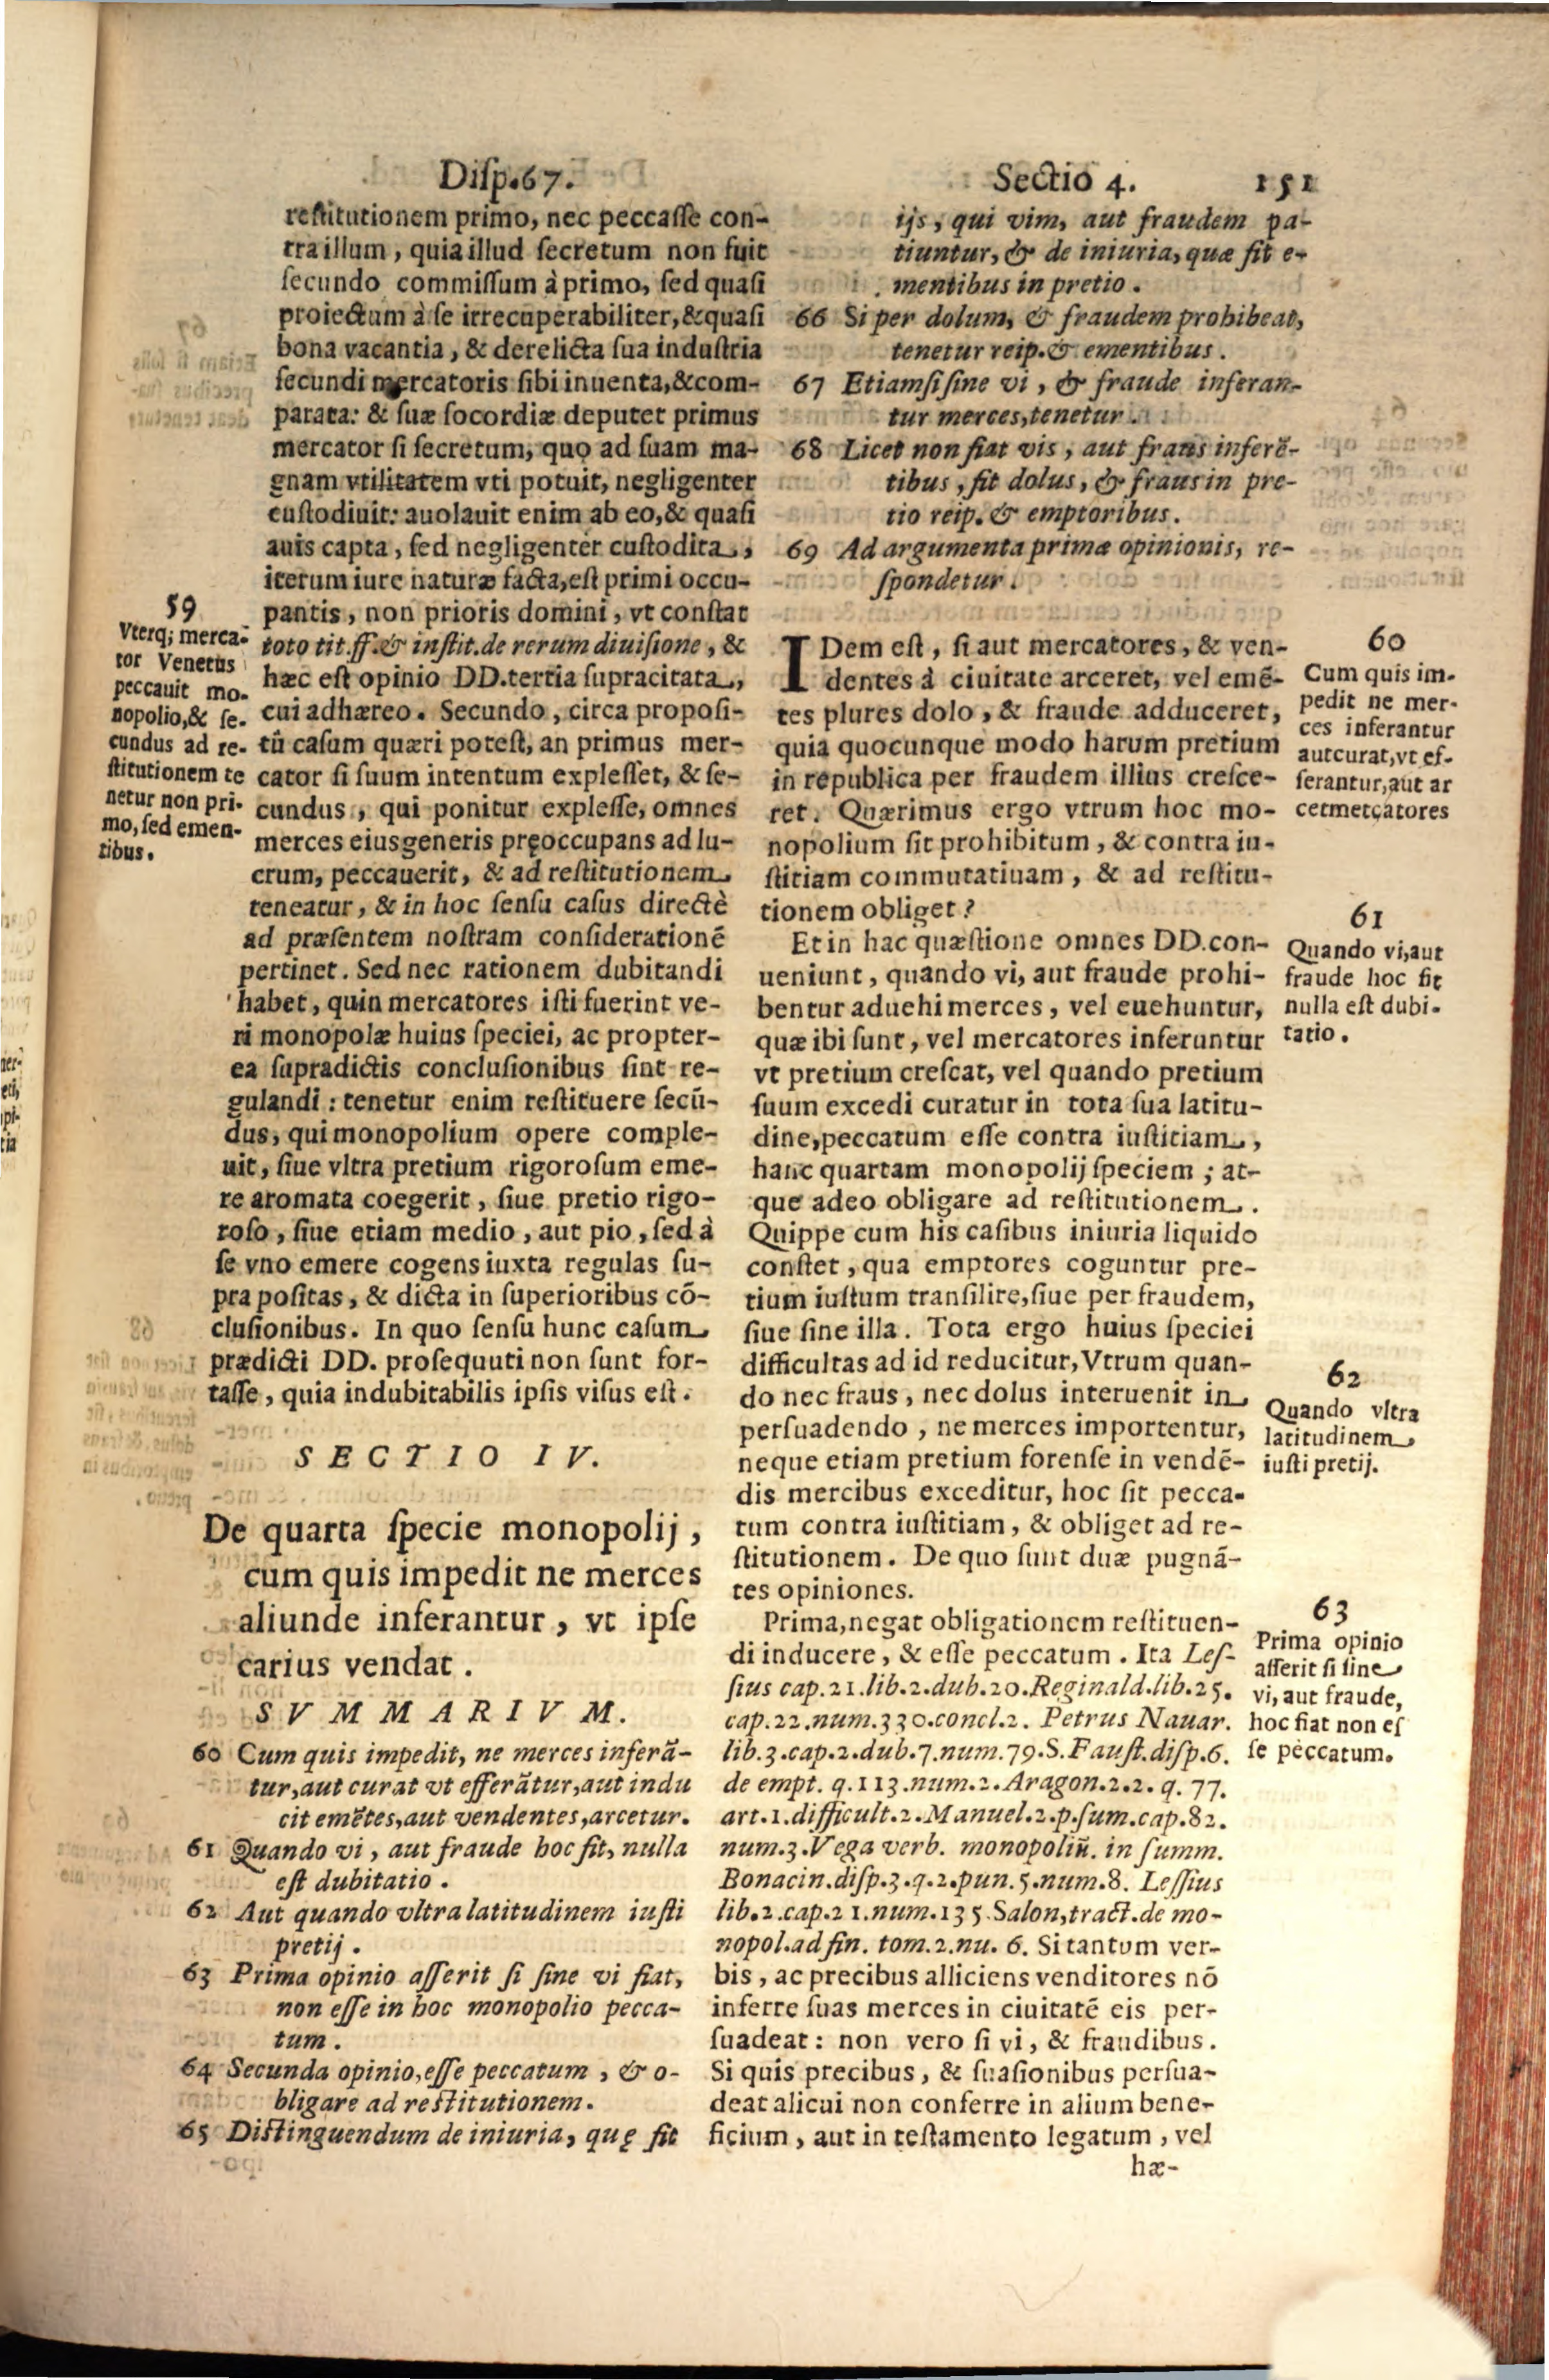 Disp.67. Sectio 4. 151
restitutionem primo, nec peccasse con-
tra illum, quia illud secretum non fuit
secundo commissum à primo, sed quasi
proiectum à se irrecuperabiliter, & quasi
bona vacantia, & derelicta sua industria
secundi mercatoris sibi inuenta, & com-
parata: & suæ socordiæ deputet primus
mercator si secretum, quo ad suam ma-
gnam vtilitatem vti potuit, negligenter
custodiuit: auolauit enim ab eo, & quasi
auis capta, sed negligenter custodita,
iterum iure naturæ facta, est primi occu-
pantis, non prioris domini, vt constat
toto tit. ff. & instit. de rerum diuisione, &
hæc est opinio DD. tertia supracitata,
cui adhæreo. Secundo, circa proposi-
tũ casum quæri potest, an primus mer-
cator si suum intentum explesset, & se-
cundus, qui ponitur explesse, omnes
merces eius generis pręoccupans ad lu-
crum, peccauerit, & ad restitutionem
teneatur, & in hoc sensu casus directè
ad præsentem nostram considerationẽ
pertinet. Sed nec rationem dubitandi
habet, quin mercatores isti fuerint ve-
ri monopolæ huius speciei, ac propter-
ea supradictis conclusionibus sint re-
gulandi: tenetur enim restituere secũ-
dus, qui monopolium opere comple-
uit, siue vltra pretium rigorosum eme-
re aromata coegerit, siue pretio rigo-
roso, siue etiam medio, aut pio, sed à
se vno emere cogens iuxta regulas su-
pra positas, & dicta in superioribus cõ-
clusionibus. In quo sensu hunc casum
prædicti DD. prosequuti non sunt for-
tasse, quia indubitabilis ipsis visus est.
59
Vterq; merca-
tor Venetus
peccauit mo-
nopolio, & se-
cundus ad re-
stitutionem te
netur non pri-
mo, sed emen-
tibus.
SECTIO IV.
De quarta specie monopolij,
cum quis impedit ne merces
aliunde inferantur, vt ipse
carius vendat.
SVMMARIVM.
60 Cum quis impedit, ne merces inferã-
tur, aut curat vt efferãtur, aut indu
cit emẽtes, aut vendentes, arcetur.
61 Quando vi, aut fraude hoc fit, nulla
est dubitatio.
62 Aut quando vltra latitudinem iusti
pretij.
63 Prima opinio asserit si sine vi fiat,
non esse in hoc monopolio pecca-
tum.
64 Secunda opinio, esse peccatum, & o-
bligare ad restitutionem.
65 Distinguendum de iniuria, quę fit
ijs, qui vim, aut fraudem pa-
tiuntur, & de iniuria, quæ fit e-
mentibus in pretio.
66 Si per dolum, & fraudem prohibeat,
tenetur reip. & ementibus.
67 Etiamsi sine vi, & fraude inferan-
tur merces, tenetur.
68 Licet non fiat vis, aut fraus inferẽ-
tibus, fit dolus, & fraus in pre-
tio reip. & emptoribus.
69 Ad argumenta primæ opinionis, re-
spondetur.
IDem est, si aut mercatores, & ven-
dentes à ciuitate arceret, vel emẽ-
tes plures dolo, & fraude adduceret,
quia quocunque modo harum pretium
in republica per fraudem illius cresce-
ret. Quærimus ergo vtrum hoc mo-
nopolium sit prohibitum, & contra iu-
stitiam commutatiuam, & ad restitu-
tionem obliget?
Et in hac quæstione omnes DD. con-
ueniunt, quando vi, aut fraude prohi-
bentur aduehi merces, vel euehuntur,
quæ ibi sunt, vel mercatores inferuntur
vt pretium crescat, vel quando pretium
suum excedi curatur in tota sua latitu-
dine, peccatum esse contra iustitiam,
hanc quartam monopolij speciem; at-
que adeo obligare ad restitutionem.
Quippe cum his casibus iniuria liquido
constet, qua emptores coguntur pre-
tium iustum transilire, siue per fraudem,
siue sine illa. Tota ergo huius speciei
difficultas ad id reducitur, Vtrum quan-
do nec fraus, nec dolus interuenit in
persuadendo, ne merces importentur,
neque etiam pretium forense in vendẽ-
dis mercibus exceditur, hoc sit pecca-
tum contra iustitiam, & obliget ad re-
stitutionem. De quo sunt duæ pugnã-
tes opiniones.
Prima, negat obligationem restituen-
di inducere, & esse peccatum. Ita Les-
sius cap. 21. lib. 2. dub. 20. Reginald. lib. 25.
cap. 22. num. 330. concl. 2. Petrus Nauar.
lib. 3. cap. 2. dub. 7. num. 79. S. Faust. disp. 6.
de empt. q. 113. num. 2. Aragon. 2. 2. q. 77.
art. 1. difficult. 2. Manuel. 2. p. sum. cap. 82.
num. 3. Vega verb. monopoliũ. in summ.
Bonacin. disp. 3. q. 2. pun. 5. num. 8. Lessius
lib. 2. cap. 21. num. 135. Salon, tract. de mo-
nopol. ad fin. tom. 2. nu. 6. Si tantum ver-
bis, ac precibus alliciens venditores nõ
inferre suas merces in ciuitatẽ eis per-
suadeat: non vero si vi, & fraudibus.
Si quis precibus, & suasionibus persua-
deat alicui non conferre in alium bene-
ficium, aut in testamento legatum, vel
hæ-
60
Cum quis im-
pedit ne mer-
ces inferantur
aut curat, vt ef-
ferantur, aut ar
cet mercatores
61
Quando vi, aut
fraude hoc fit
nulla est dubi-
tatio.
62
Quando vltra
latitudinem
iusti pretij.
63
Prima opinio
asserit si sine
vi, aut fraude,
hoc fiat non es
se peccatum.